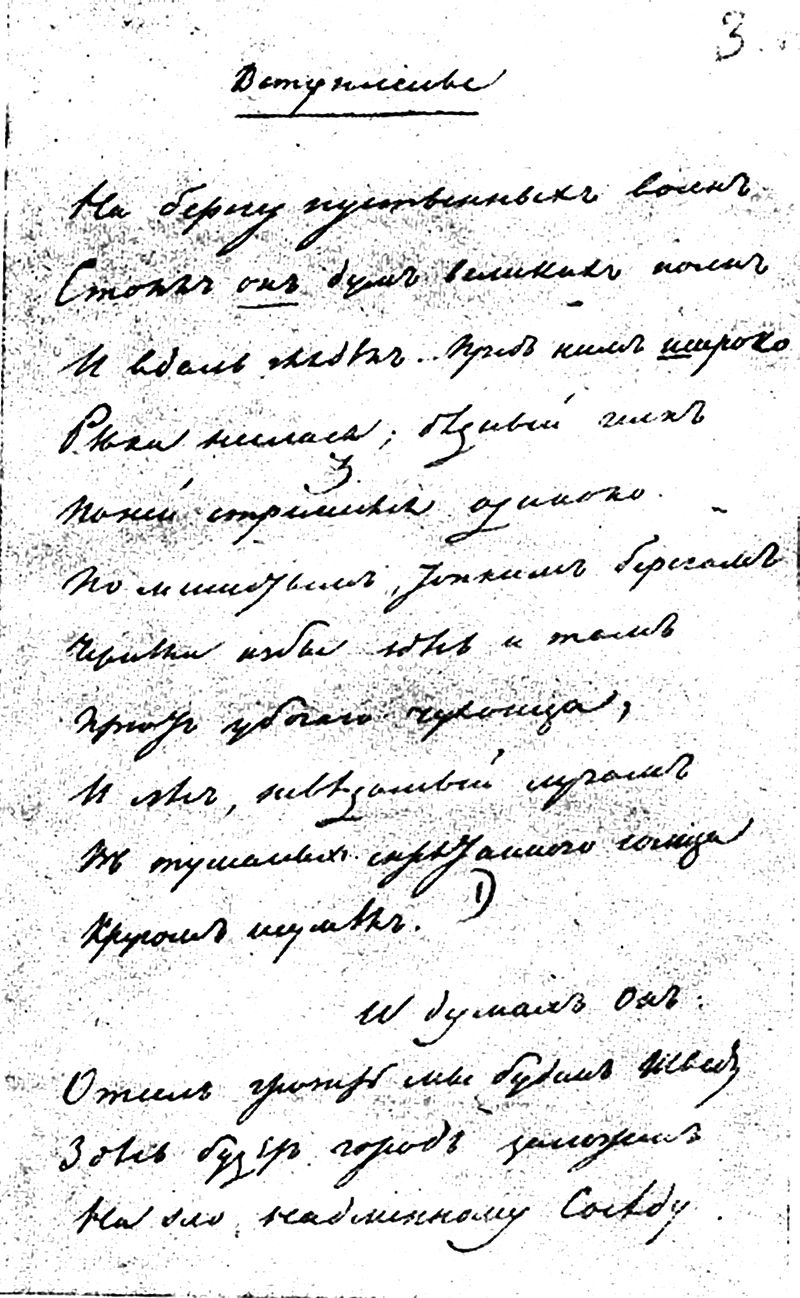 3.
Вступленье
На берегу пустынныхъ волнъ
Стоялъ онъ думъ великихъ полнъ
И вдаль глядѣлъ. Предъ нимъ широко
Рѣка неслася; бѣдный челнъ
По ней стремился одиноко.
По мшистымъ, топкимъ берегамъ
Чернѣли избы здѣсь и тамъ
Пріютъ убогаго чухонца,
И лѣсъ, невѣдомый лучамъ
Въ туманѣ спрятаннаго солнца
Кругомъ шумѣлъ. 1)
И думалъ Онъ:
Отсель грозить мы будемъ Шведу
Здѣсь будетъ городъ заложенъ
На зло надменному Сосѣду.